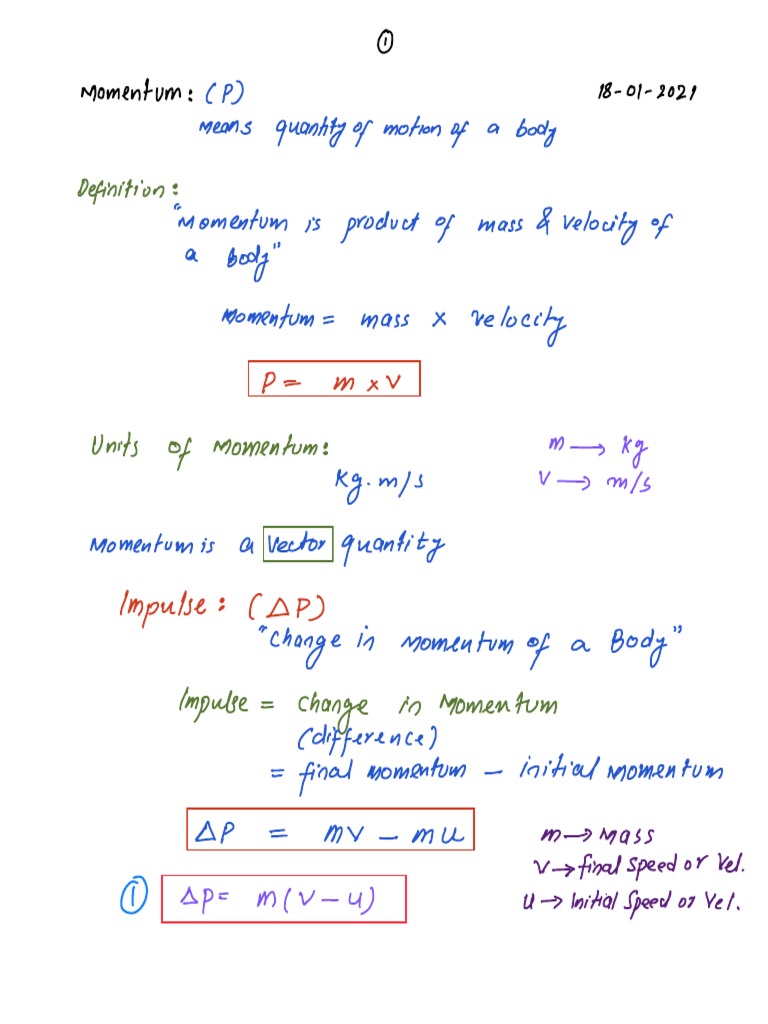 ①
Momentum: (P) 18-01-2021
Means quantity of motion of a body
Definition:
"Momentum is product of mass & velocity of
a body"
Momentum = mass x velocity
P = m x v
Units of Momentum: m → kg
kg.m/s v → m/s
Momentum is a vector quantity
Impulse: (ΔP)
"Change in Momentum of a Body"
Impulse = change in Momentum
(difference)
= final momentum - initial momentum
ΔP = mv - mu m → Mass
v → final speed or Vel.
① ΔP = m(v-u) u → Initial Speed or Vel.